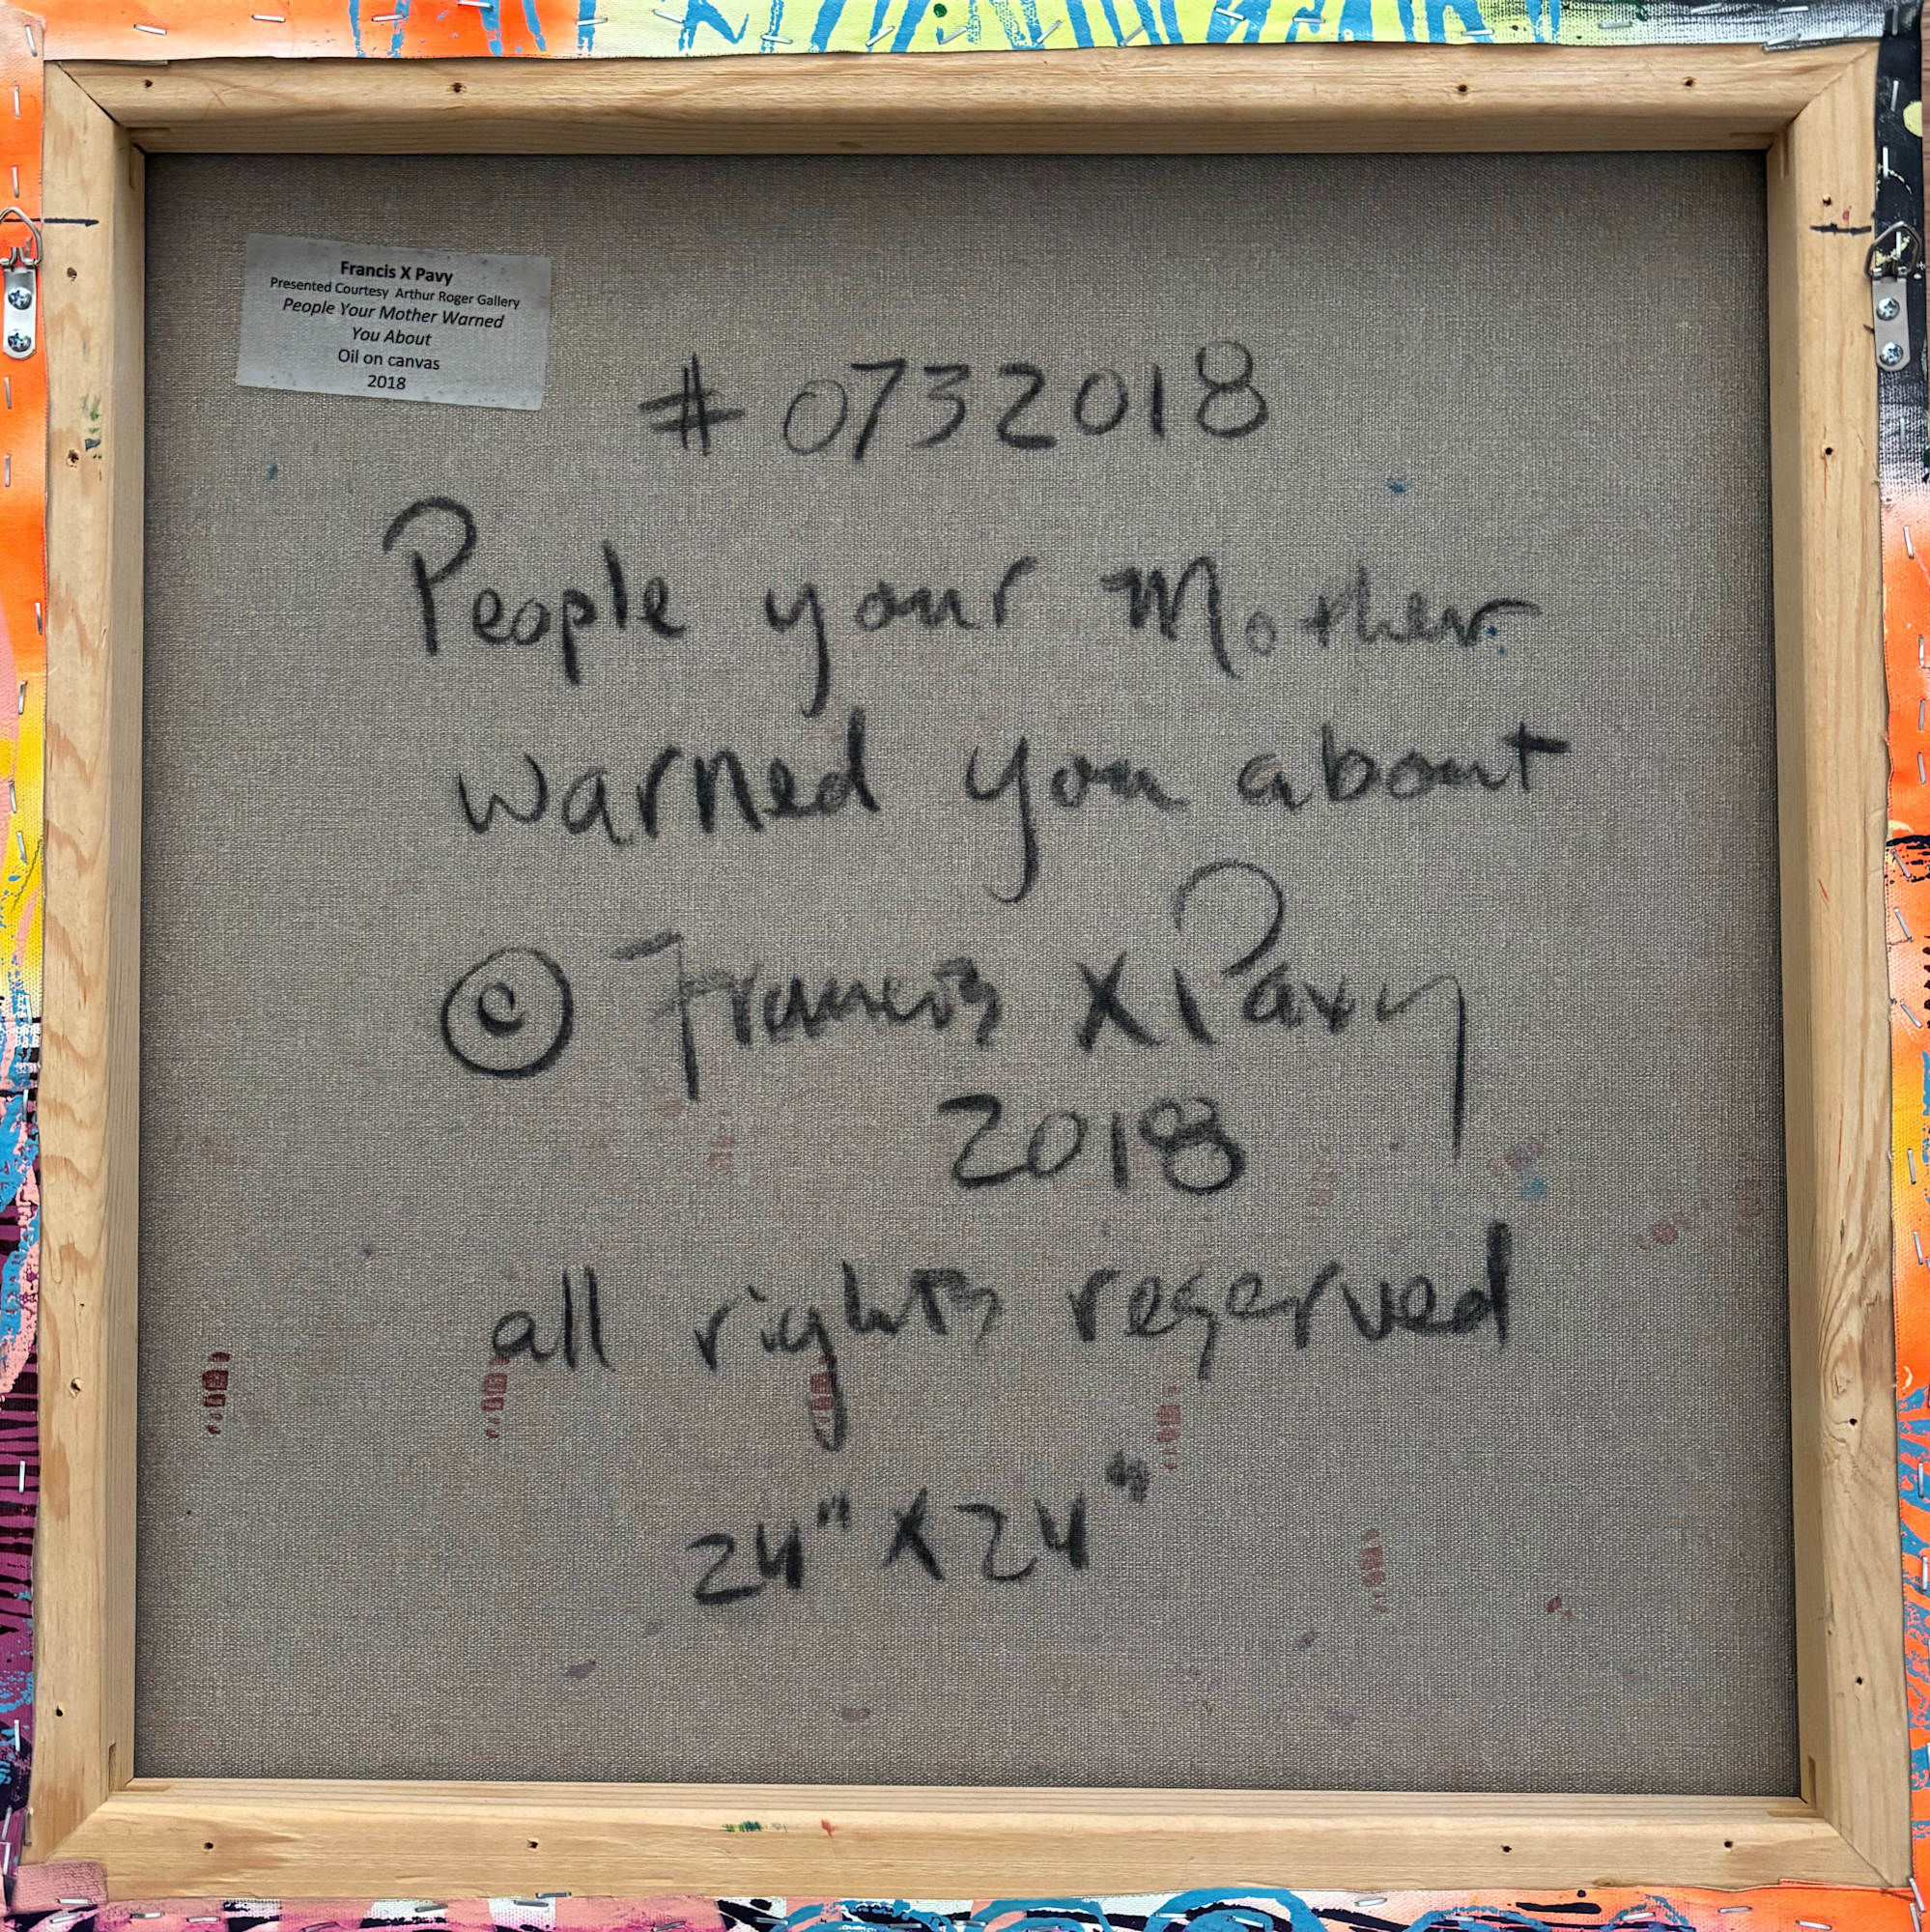 Francis X Pavy
Presented Courtesy Arthur Roger Gallery
People Your Mother Warned
You About
Oil on canvas
2018
# 0732018
People your Mother
warned you about
© Francis X Pavy
2018
all rights reserved
24" X 24"